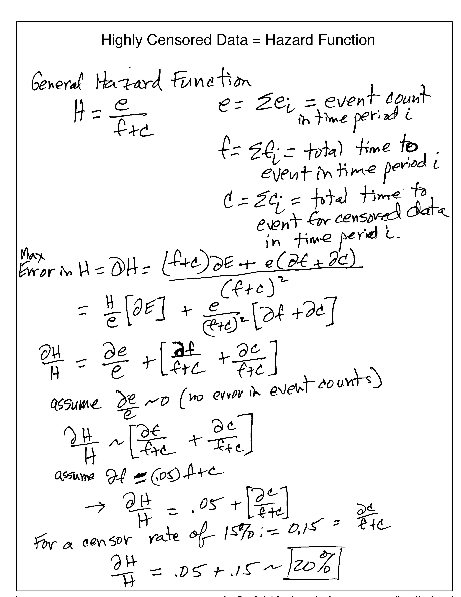 Highly Censored Data = Hazard Function
General Hazard Function
H = e/(f+c)
e = Σei = event count in time period i
f = Σfi = total time to event in time period i
c = Σci = total time to event for censored data in time period i.
Max
Error in H = ∂H = ((f+c)∂E + e(∂f + ∂c))/(f+c)²
= H/e [∂E] + e/(f+c)² [∂f + ∂c]
∂H/H = ∂e/e + [∂f/(f+c) + ∂c/(f+c)]
assume ∂e/e ~ 0 (no error in event counts)
∂H/H ~ [∂f/(f+c) + ∂c/(f+c)]
assume ∂f = (.05) f+c
→ ∂H/H = .05 + [∂c/(f+c)]
For a censor rate of 15% := 0.15 = ∂c/(f+c)
∂H/H = .05 + .15 ~ 20%